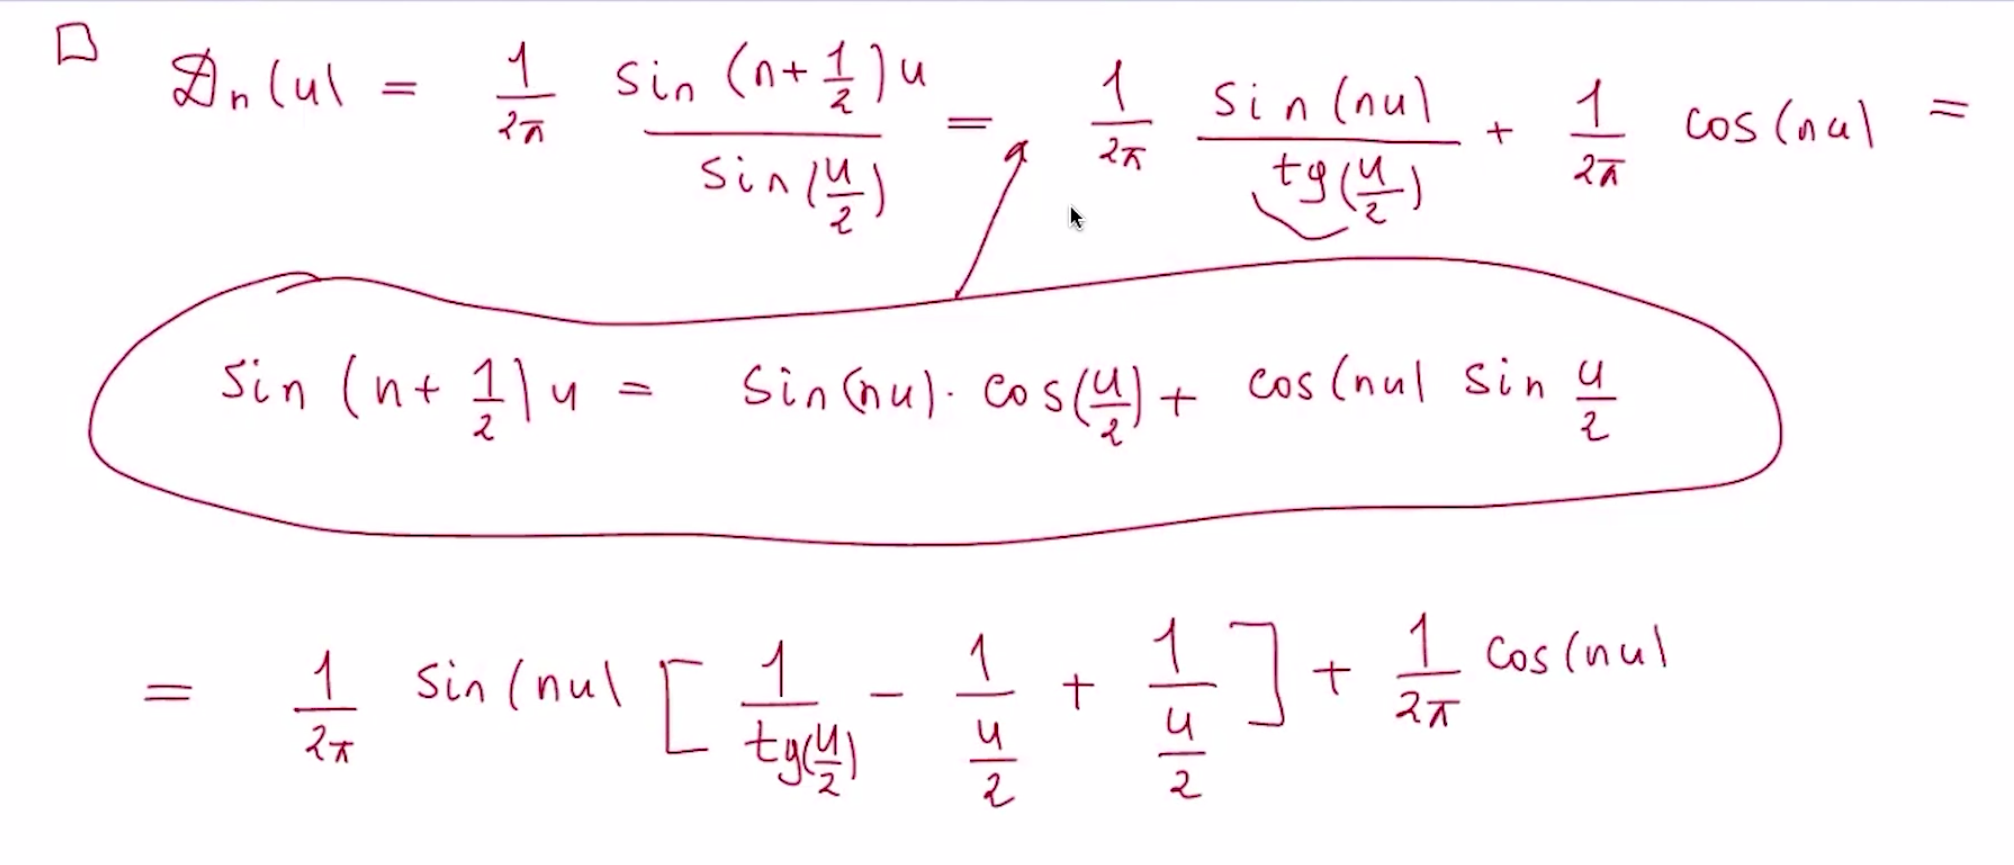 □ Dₙ(u) = 1/2π sin(n+1/2)u / sin(u/2) = 1/2π sin(nu) / tg(u/2) + 1/2π cos(nu) =
sin(n+1/2)u = sin(nu)·cos(u/2) + cos(nu) sin u/2
= 1/2π sin(nu) [1/tg(u/2) − 1/(u/2) + 1/(u/2)] + 1/2π cos(nu)